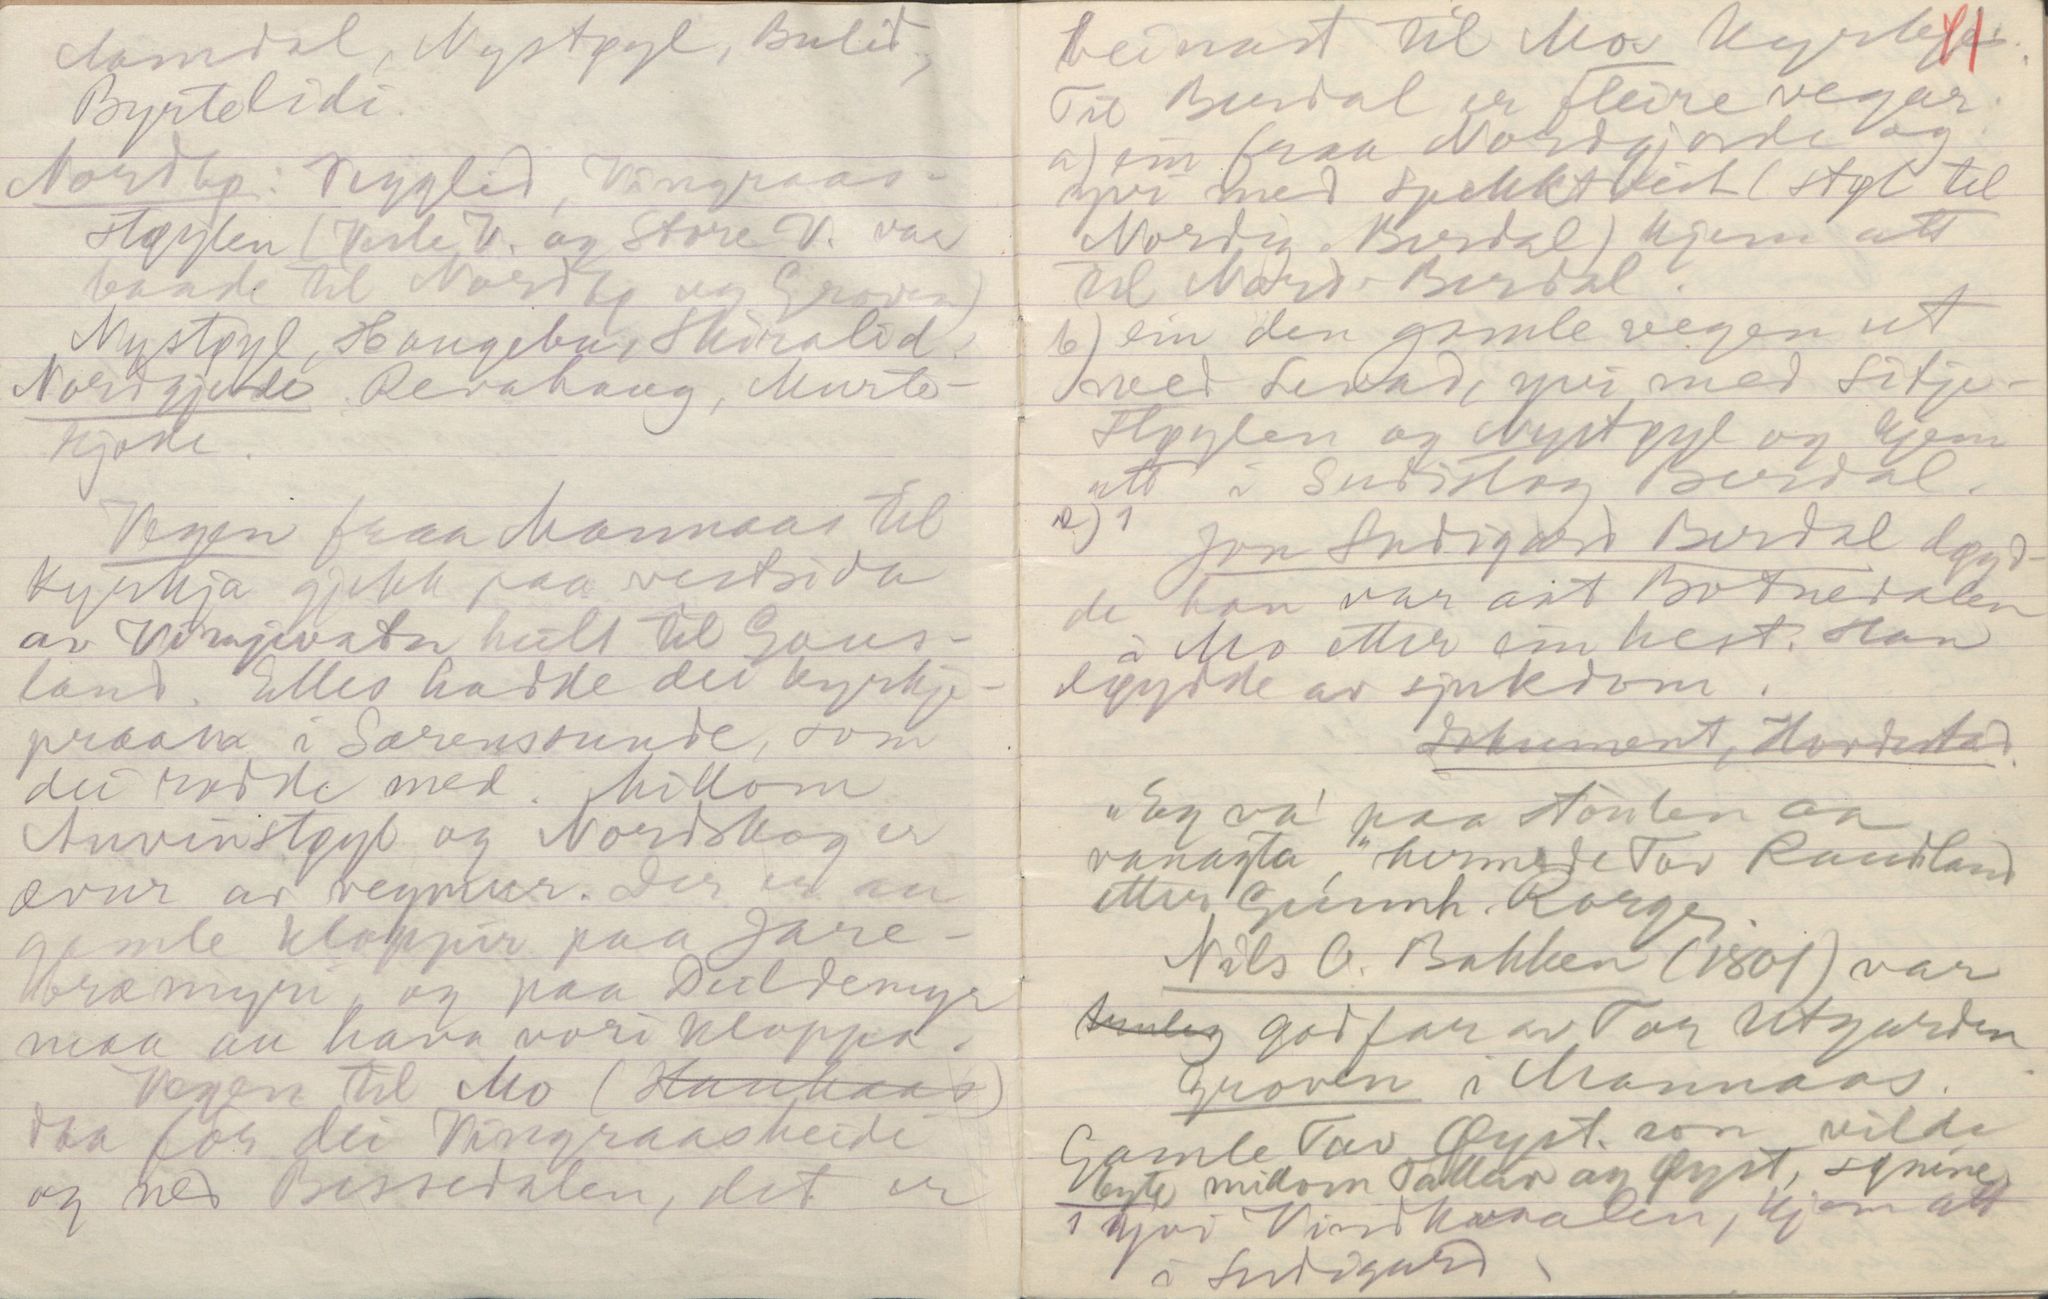 Aamdal, Nystøyl, Bulid,
Byrtelidi.
Nordbø: Vegglid, Vingraas-
støylen (Vesle V. og Store V. var
baade til Nordbø og Groven)
Nystøyl, Haugebu, Skiralid.
Nordgjorde Revahaug, Murte-
tjøde.
Vegen fraa Mannaas til
kyrkja gjekk paa vestsida
av Vinjevatn heilt til Gaus-
land. Elles hadde dei kyrkje-
praam i Særensunde, som
dei rodde med. Millom
Anvinstøyl og Nordskog er
ovur av vegmur. Der er au
gamle kloppir paa Jare-
bræmyri, og paa Duldemyr
maa au hava vori kloppa.
Vegen til Mo (Haukaas)
daa for dei Vingraasheidi
og ned Bessedalen, det er
beinast til Mo kyrkje.
Til Burdal er fleire vegar.
a) ein fraa Nordgjorde og
yvi med Spekkt (støl til
Nordig. Burdal) kjem att
til Nord-Burdal.
b) ein den gamle vegen ut
ved Levad, yvi med Sitje-
støylen og Nystøyl og kjem
att i Sudistog Burdal.
c) 1
Jon Sudigard Burdal døyd-
de han var aat Botnedalen
i Mo etter ein hest. Han
døydde av sjukdom.
Dokument, Hordestad.
"Eg va' paa stoulen aa
vanagta", hermede Tov Raudland
etter Gunnh. Rorge.
Nils O. Bakken (1801) var
truleg godfar av Tor Utgarden
Groven i Mannaas.
Gamle Tov Øyst.son vilde
byte millom Tallav og Øyst, synine
1 yvi Vindkvalen, kjem att
i Sudigard
11